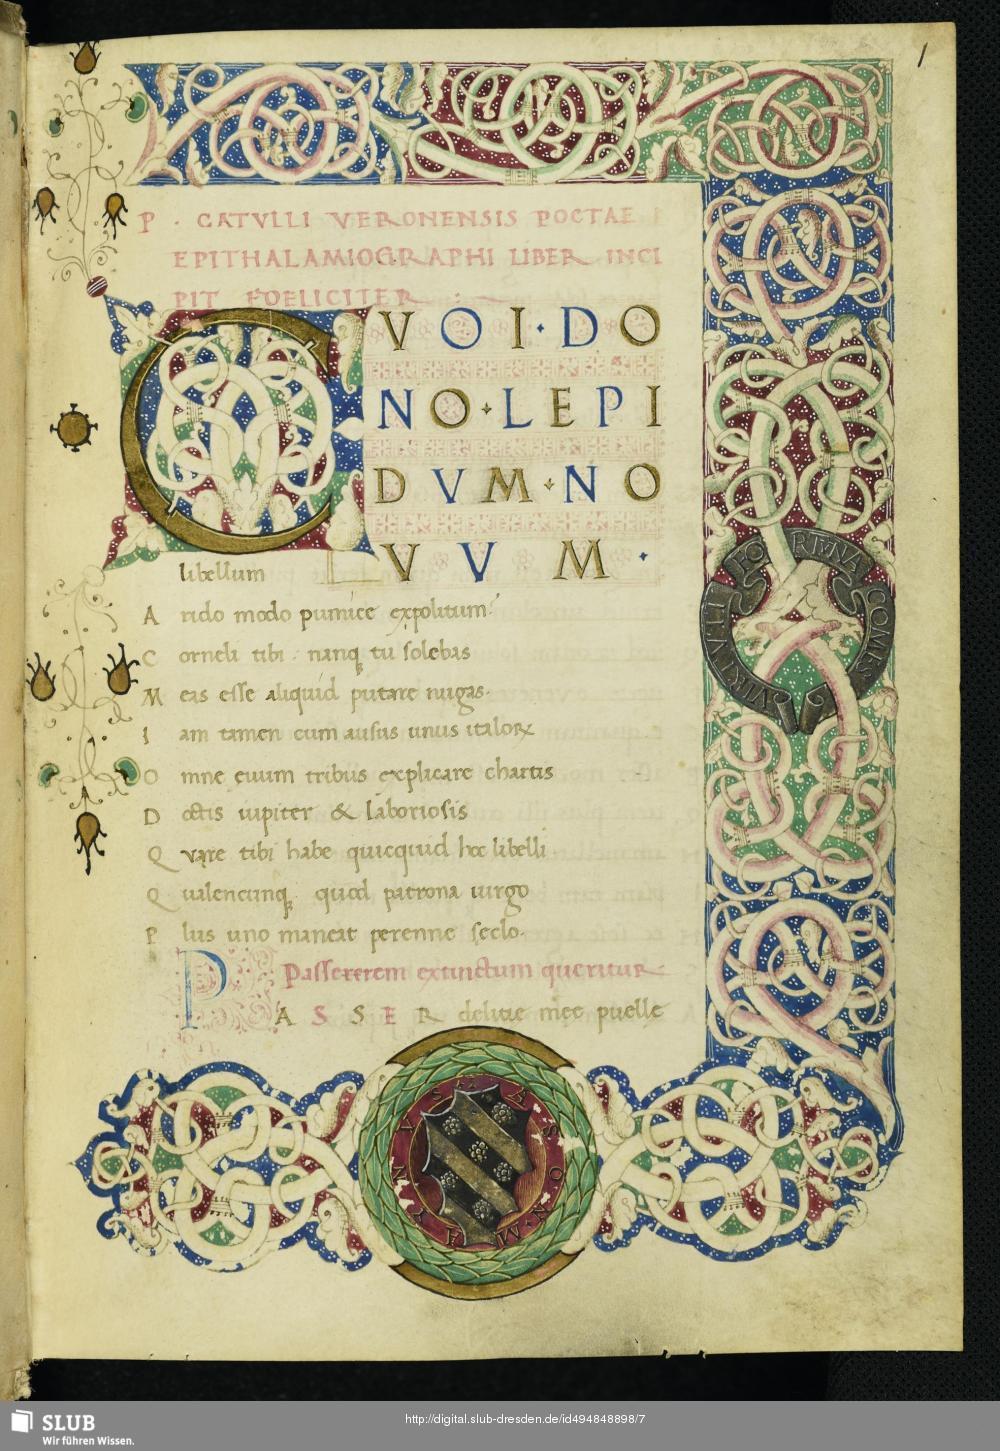 1
P · CATVLLI VERONENSIS POETAE
EPITHALAMIOGRAPHI LIBER INCI
PIT FOELICITER
CVOI · DO
NO · LEPI
DVM · NO
VVM ·
libellum
Arido modo pumice expolitum?
Corneli tibi . nanq tu solebas
Meas esse aliquid putare nugas.
Iam tamen cum ausus unus italoꝝ
Omne euum tribus explicare chartis
Doctis iupiter & laboriosis
Qvare tibi habe quicquid hoc libelli
Qualencunq quod patrona uirgo
Plus uno maneat perenne seclo.
Passererem extinctum queritur
PASSER delitie mee puelle
VIRTVTI FORTVNA COMES
SLUB
Wir führen Wissen.
http://digital.slub-dresden.de/id494848898/7